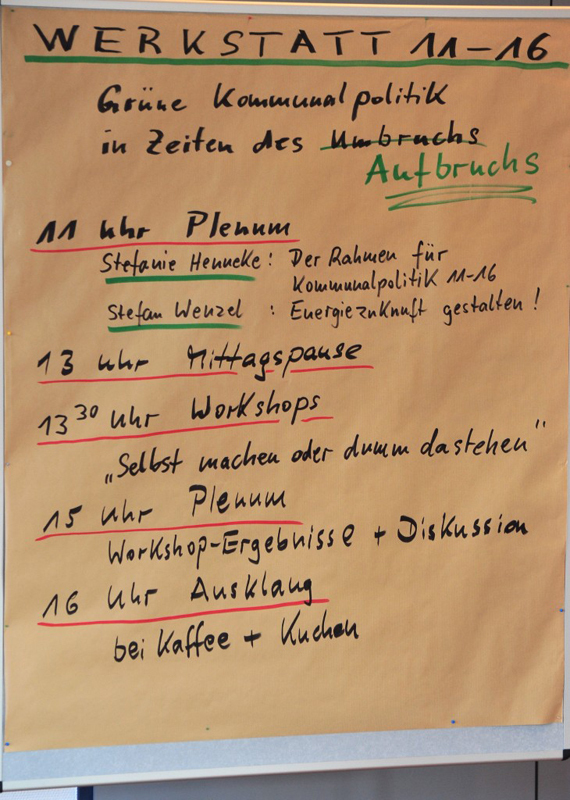 WERKSTATT 11-16
Grüne Kommunalpolitik
in Zeiten des Umbruchs
Aufbruchs
11 Uhr Plenum
Stefanie Henneke: Der Rahmen für
Kommunalpolitik 11-16
Stefan Wenzel : Energiezukunft gestalten!
13 Uhr Mittagspause
13 30 Uhr Workshops
„Selbst machen oder dumm dastehen"
15 Uhr Plenum
Workshop-Ergebnisse + Diskussion
16 Uhr Ausklang
bei Kaffee + Kuchen